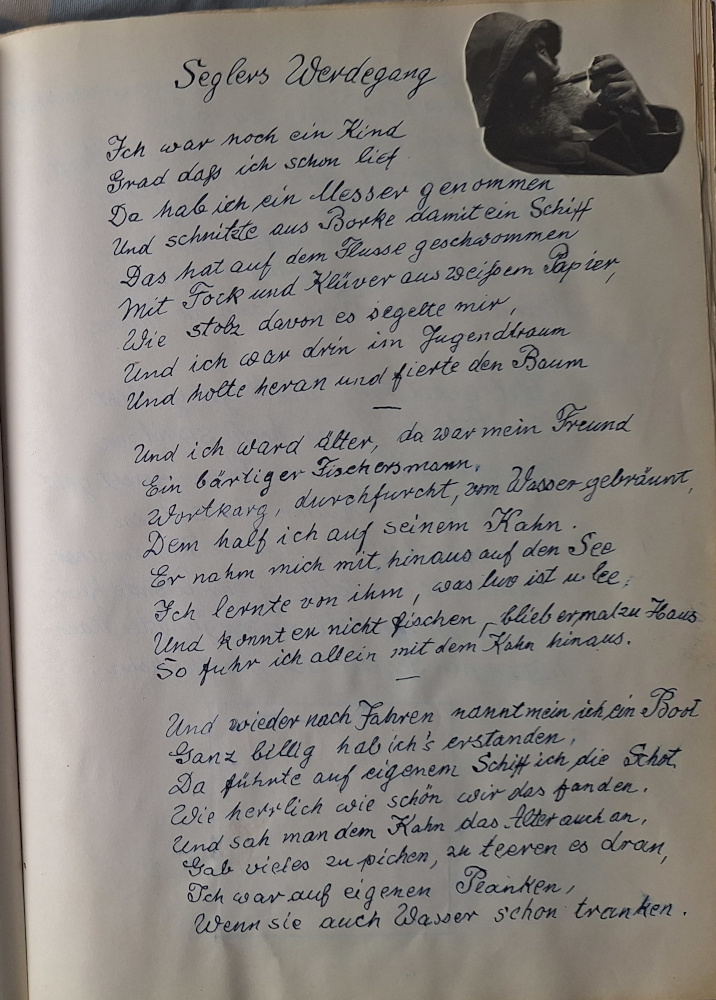 Seglers Werdegang
Ich war noch ein Kind
Grad daß ich schon lief
Da hab ich ein Messer genommen
Und schnitzte aus Borke damit ein Schiff
Das hat auf dem Flusse geschwommen
Mit Fock und Klüver aus weißem Papier,
Wie stolz davon es segelte mir,
Und ich war drin im Jugendtraum
Und holte heran und fierte den Baum
—
Und ich ward älter, da war mein Freund
Ein bärtiger Fischersmann.
Wortkarg, durchfurcht, vom Wasser gebräunt,
Dem half ich auf seinem Kahn.
Er nahm mich mit, hinaus auf den See
Ich lernte von ihm, was luv ist u lee;
Und konnt er nicht fischen, blieb er mal zu Haus
So fuhr ich allein mit dem Kahn hinaus.
—
Und wieder nach Jahren nannt mein ich ein Boot
Ganz billig hab ich's erstanden,
Da führte auf eigenem Schiff ich die Schot
Wie herrlich wie schön wir das fanden.
Und sah man dem Kahn das Alter auch an,
Gab vieles zu pichen, zu teeren es dran,
Ich war auf eigenen Planken,
Wenn sie auch Wasser schon tranken.